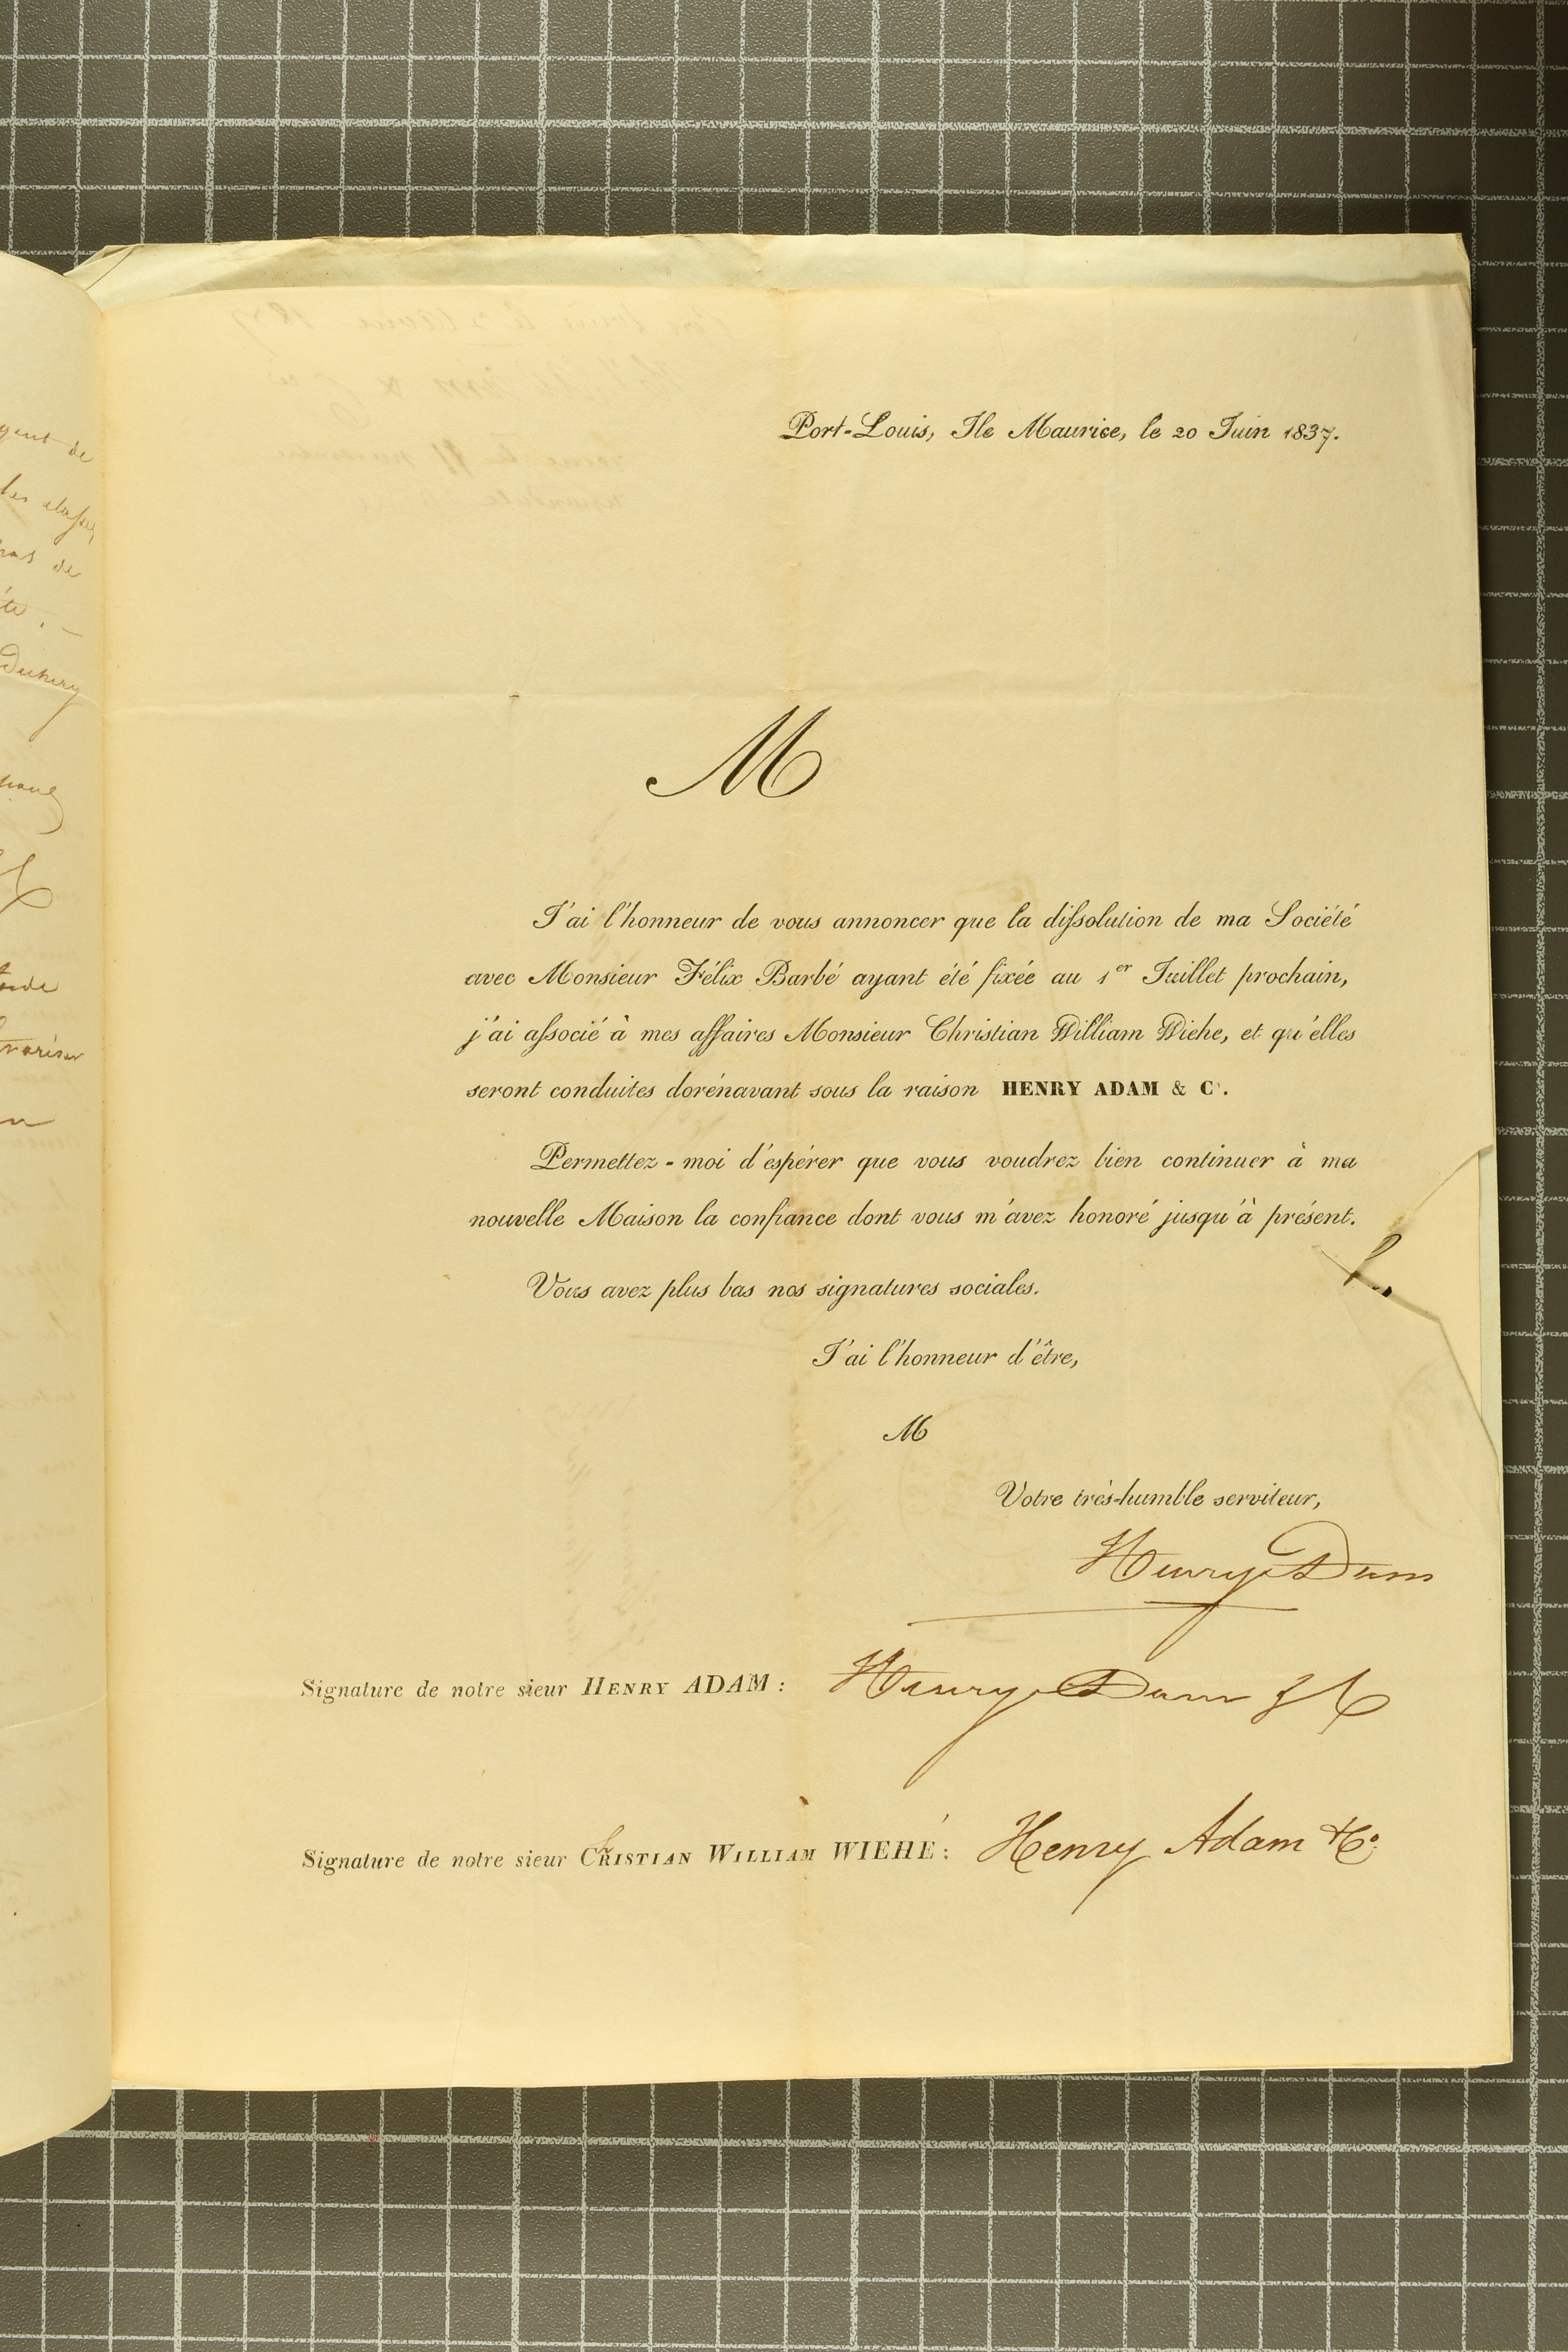 Port-Louis, Ile Maurice, le 20 Juin 1837.
M
J'ai l'honneur de vous annoncer que la dissolution de ma Société
avec Monsieur Félix Barbé ayant été fixée au 1er Juillet prochain,
j'ai associé à mes affaires Monsieur Christian William Wiehe, et qu'elles
seront conduites dorénavant sous la raison HENRY ADAM & Ce.
Permettez-moi d'espérer que vous voudrez bien continuer à ma
nouvelle Maison la confiance dont vous m'avez honoré jusqu'à présent.
Vous avez plus bas nos signatures sociales.
J'ai l'honneur d'être,
M
Votre très-humble serviteur,
Henry Adam
Signature de notre sieur HENRY ADAM : Henry Adam & Co
Signature de notre sieur ChRISTIAN WILLIAM WIEHÉ : Henry Adam & Co.